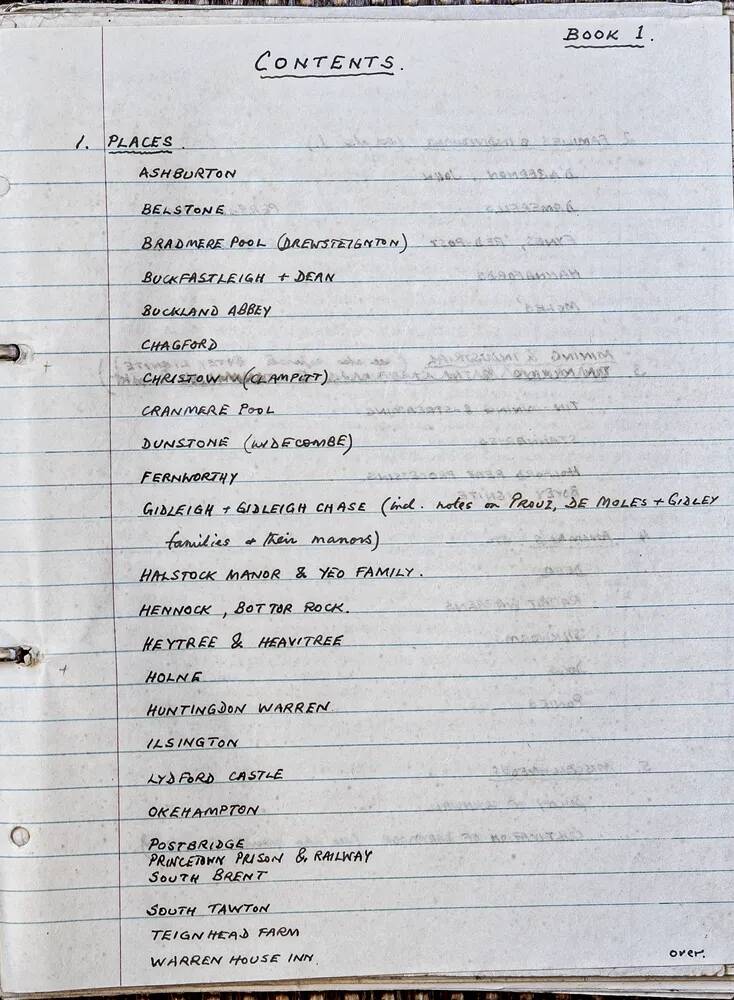 BOOK 1.
CONTENTS.
1. PLACES.
ASHBURTON
BELSTONE
BRADMERE POOL (DREWSTEIGNTON)
BUCKFASTLEIGH + DEAN
BUCKLAND ABBEY
CHAGFORD
CHRISTOW (CLAMPITT)
CRANMERE POOL
DUNSTONE (WIDECOMBE)
FERNWORTHY
GIDLEIGH + GIDLEIGH CHASE (incl. notes on PROUZ, DE MOLES + GIDLEY
families & their manors)
HALSTOCK MANOR & YEO FAMILY.
HENNOCK, BOTTOR ROCK.
HEYTREE & HEAVITREE
HOLNE
HUNTINGDON WARREN
ILSINGTON
LYDFORD CASTLE
OKEHAMPTON
POSTBRIDGE
PRINCETOWN PRISON & RAILWAY
SOUTH BRENT
SOUTH TAWTON
TEIGNHEAD FARM
WARREN HOUSE INN.
over.